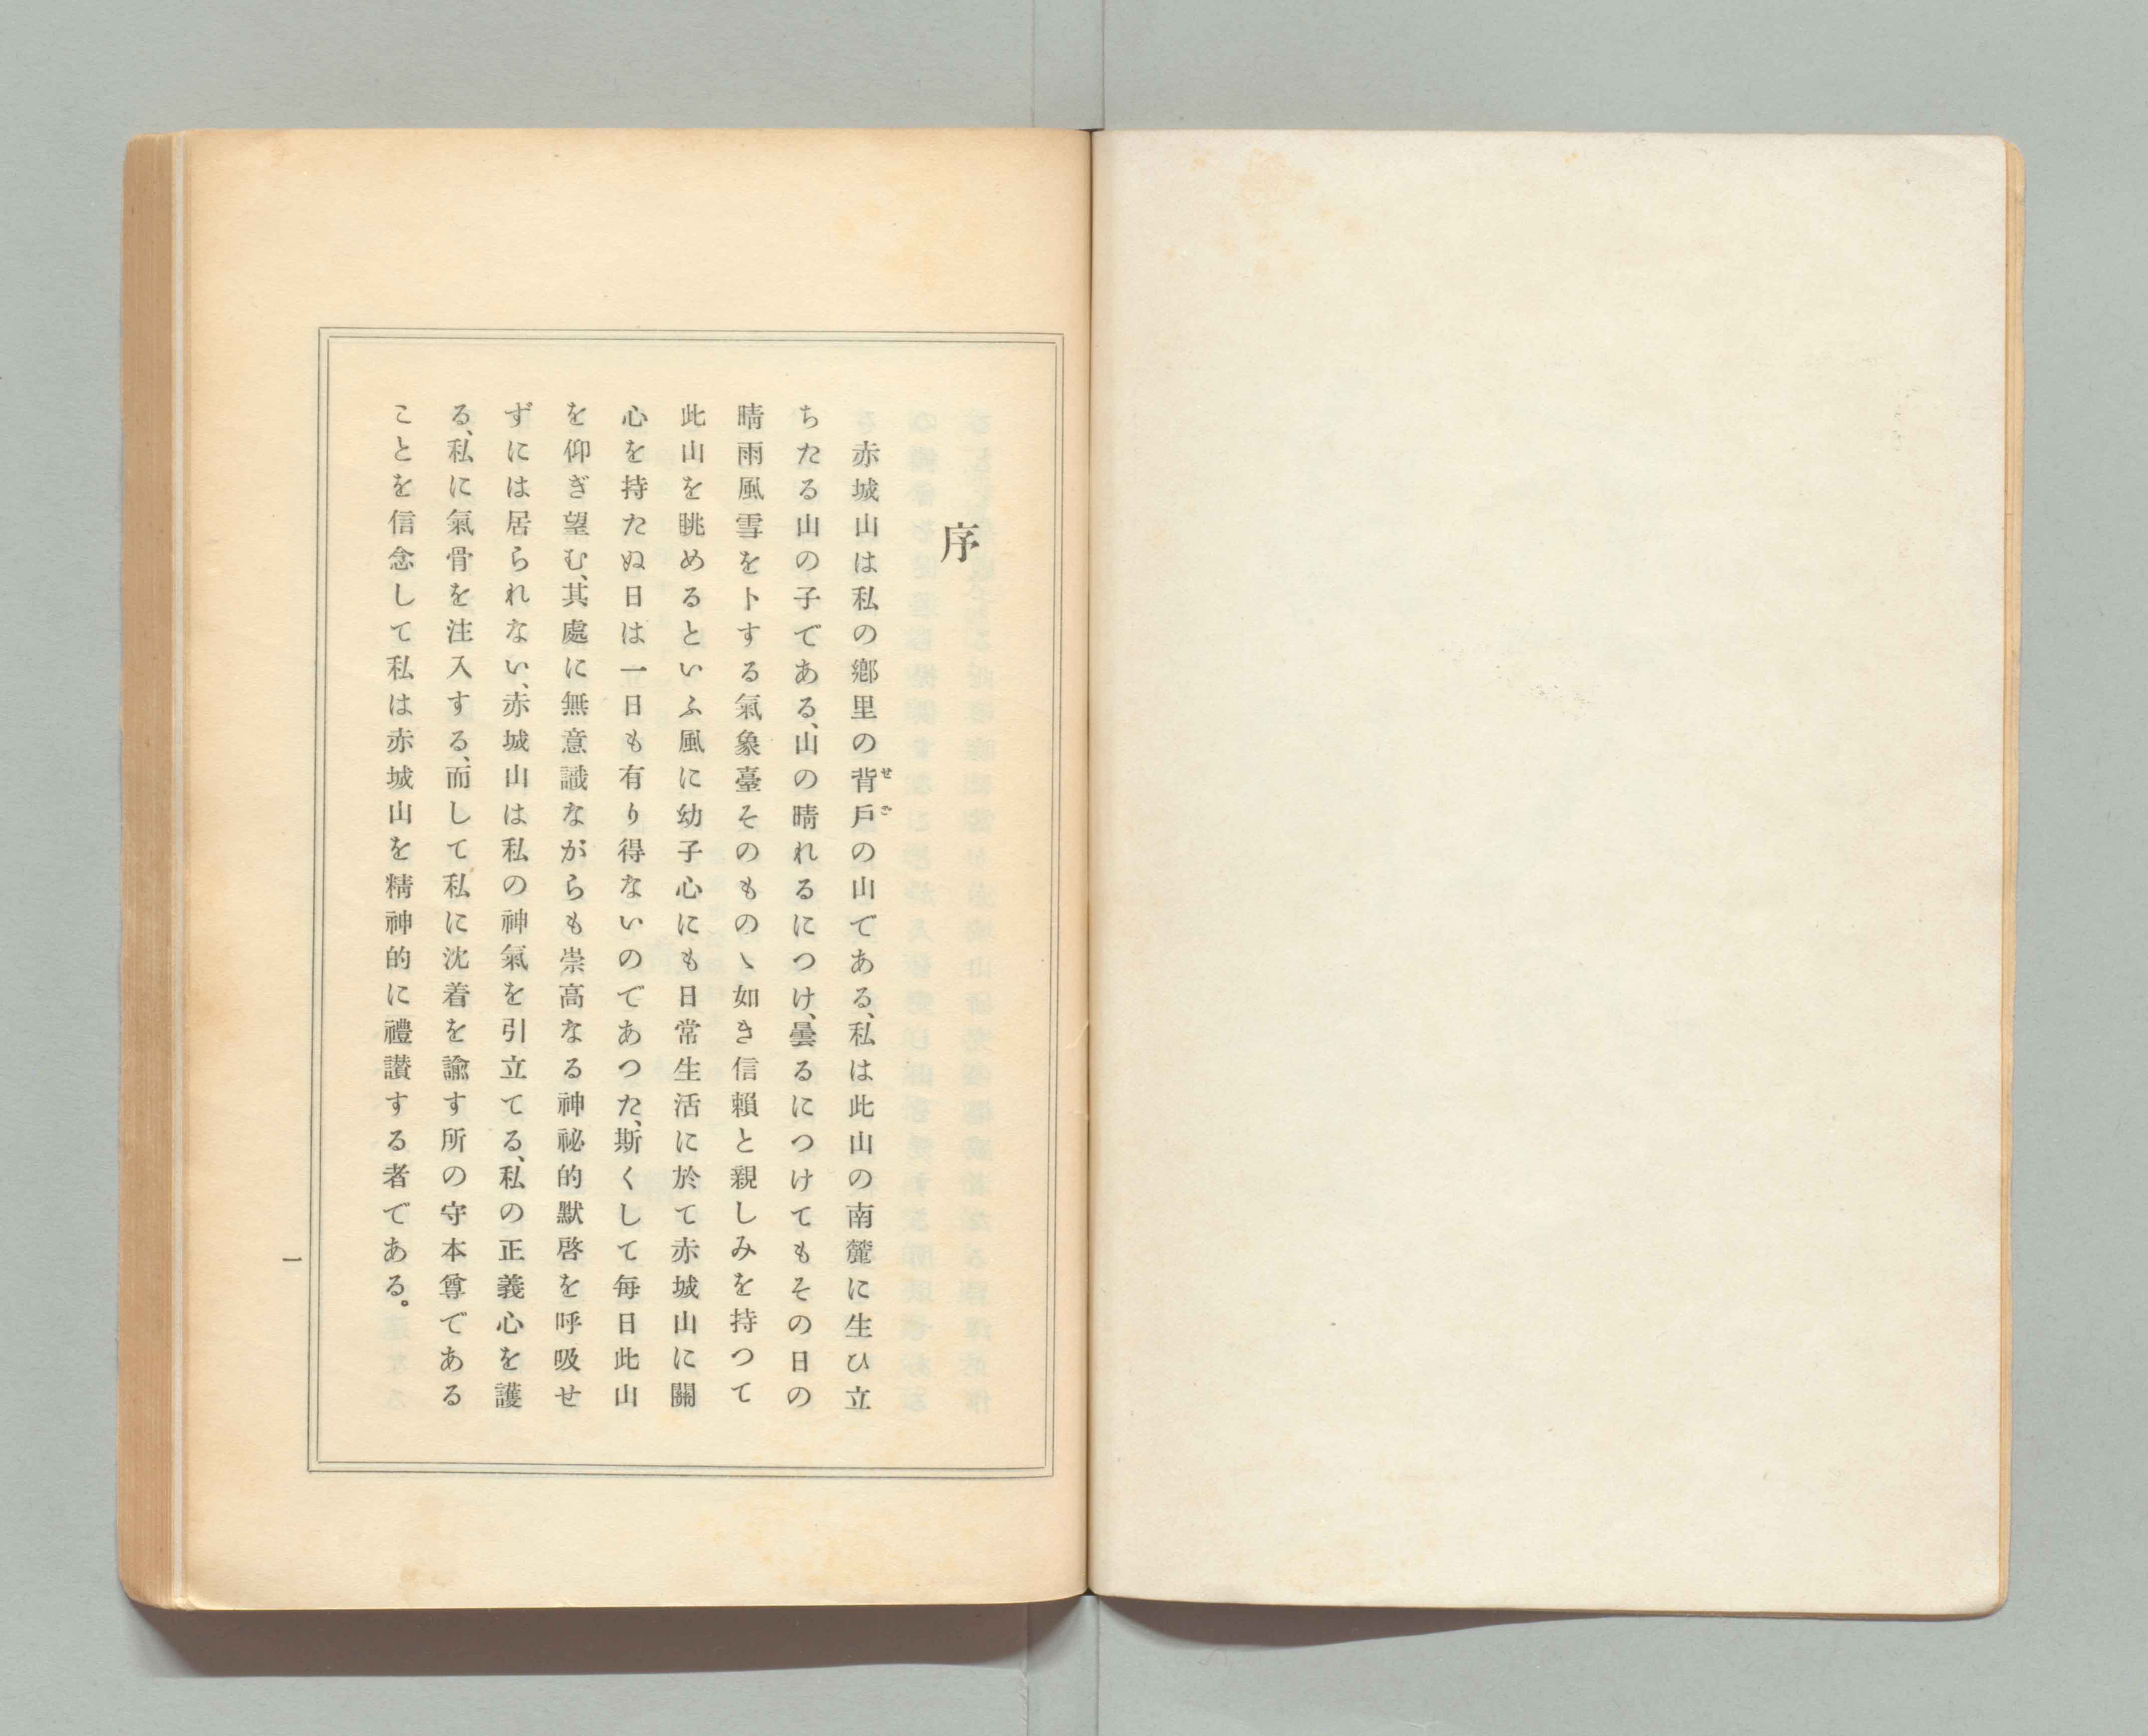 序
赤城山は私の鄕里の背戶の山である、私は此山の南麓に生ひ立
せど
ちたる山の子である、山の晴れるにつけ、曇るにつけてもその日の
晴雨風雪を卜する氣象臺そのものゝ如き信賴と親しみを持つて
此山を眺めるといふ風に幼子心にも日常生活に於て赤城山に關
心を持たぬ日は一日も有り得ないのであつた、斯くして每日此山
を仰ぎ望む、其處に無意識ながらも崇高なる神祕的默啓を呼吸せ
ずには居られない、赤城山は私の神氣を引立てる、私の正義心を護
る、私に氣骨を注入する、而して私に沈着を諭す所の守本尊である
ことを信念して私は赤城山を精神的に禮讃する者である。
一